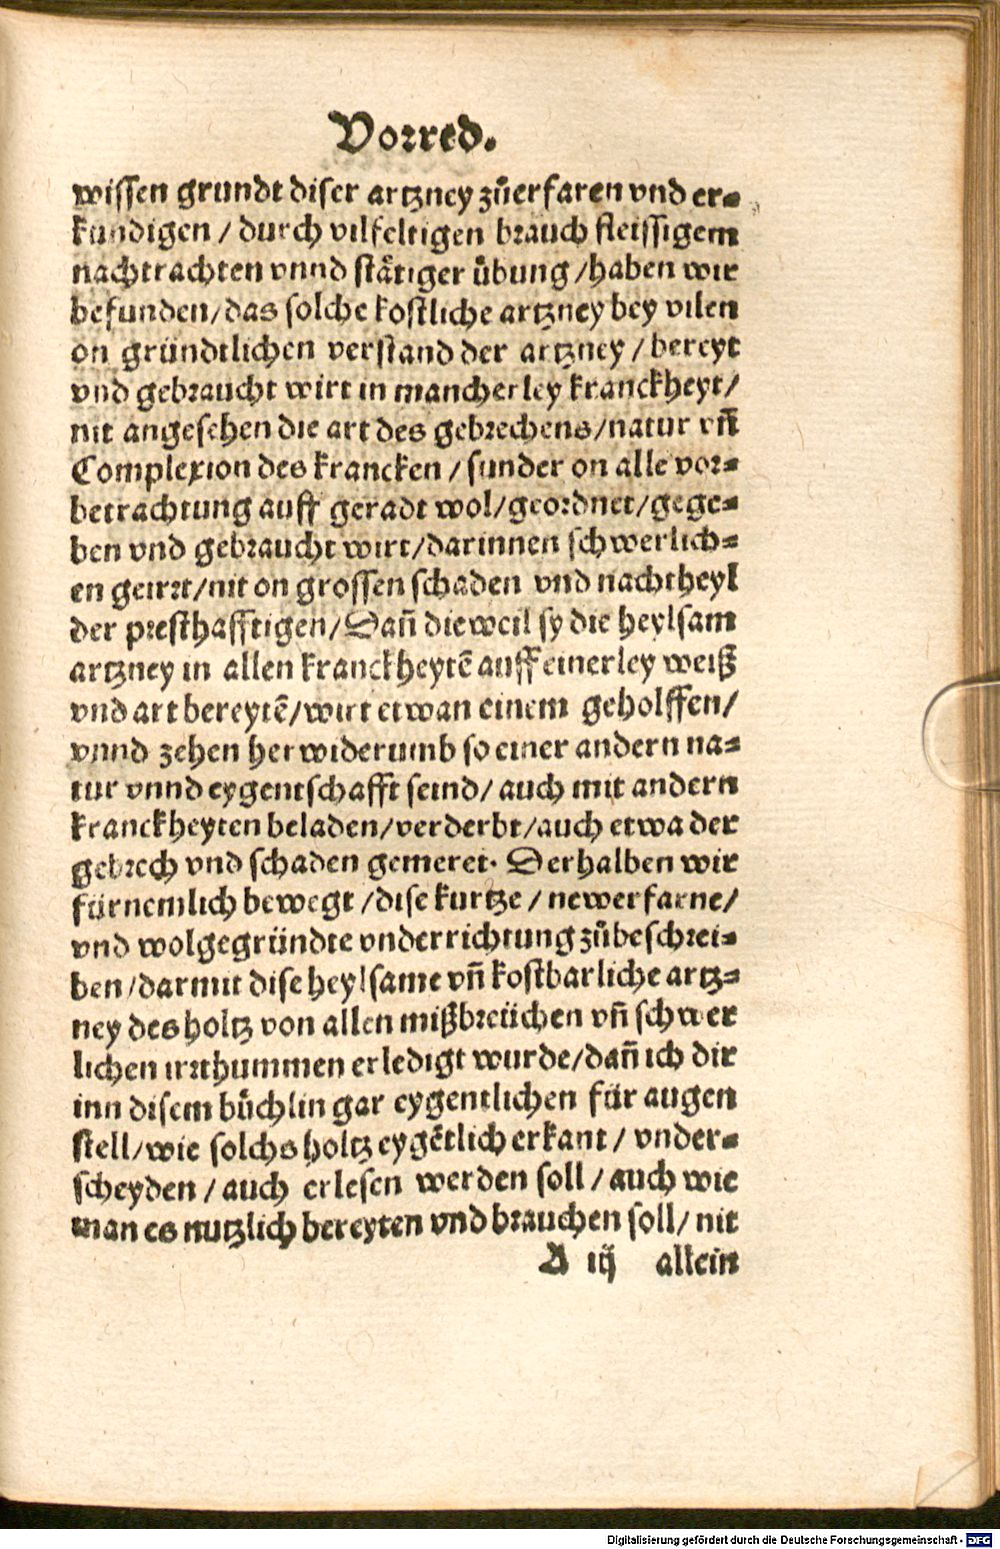 Vorred.
wissen grundt diser artzney zůerfaren vnd er⸗
kundigen / durch vilfeltigen brauch fleissigem
nachtrachten vnnd stätiger übung / haben wir
befunden / das solche kostliche artzney bey vilen
on gründtlichen verstand der artzney / bereyt
vnd gebraucht wirt in mancherley kranckheyt /
nit angesehen die art des gebrechens / natur vñ
Complexion des krancken / sunder on alle vor⸗
betrachtung auff geradt wol / geordnet / gege⸗
ben vnd gebraucht wirt / darinnen schwerlich⸗
en geirrt / nit on grossen schaden vnd nachtheyl
der presthafftigen / Dañ dieweil sy die heylsam
artzney in allen kranckheytē auff einerley weiß
vnd art bereytē / wirt etwan einem geholffen /
vnnd zehen herwiderumb so einer andern na⸗
tur vnnd eygentschafft seind / auch mit andern
kranckheyten beladen / verderbt / auch etwa der
gebrech vnd schaden gemeret. Derhalben wir
fürnemlich bewegt / dise kurtze / newerfarne /
vnd wolgegründte vnderrichtung zůbeschrei⸗
ben / darmit dise heylsame vñ kostbarliche artz⸗
ney des holtz von allen mißbreüchen vñ schwer
lichen irrthummen erledigt wurde / dañ ich dir
inn disem büchlin gar eygentlichen für augen
stell / wie solchs holtz eygētlich erkant / vnder⸗
scheyden / auch erlesen werden soll / auch wie
man es nutzlich bereyten vnd brauchen soll / nit
A iij allein
Digitalisierung gefördert durch die Deutsche Forschungsgemeinschaft - DFG